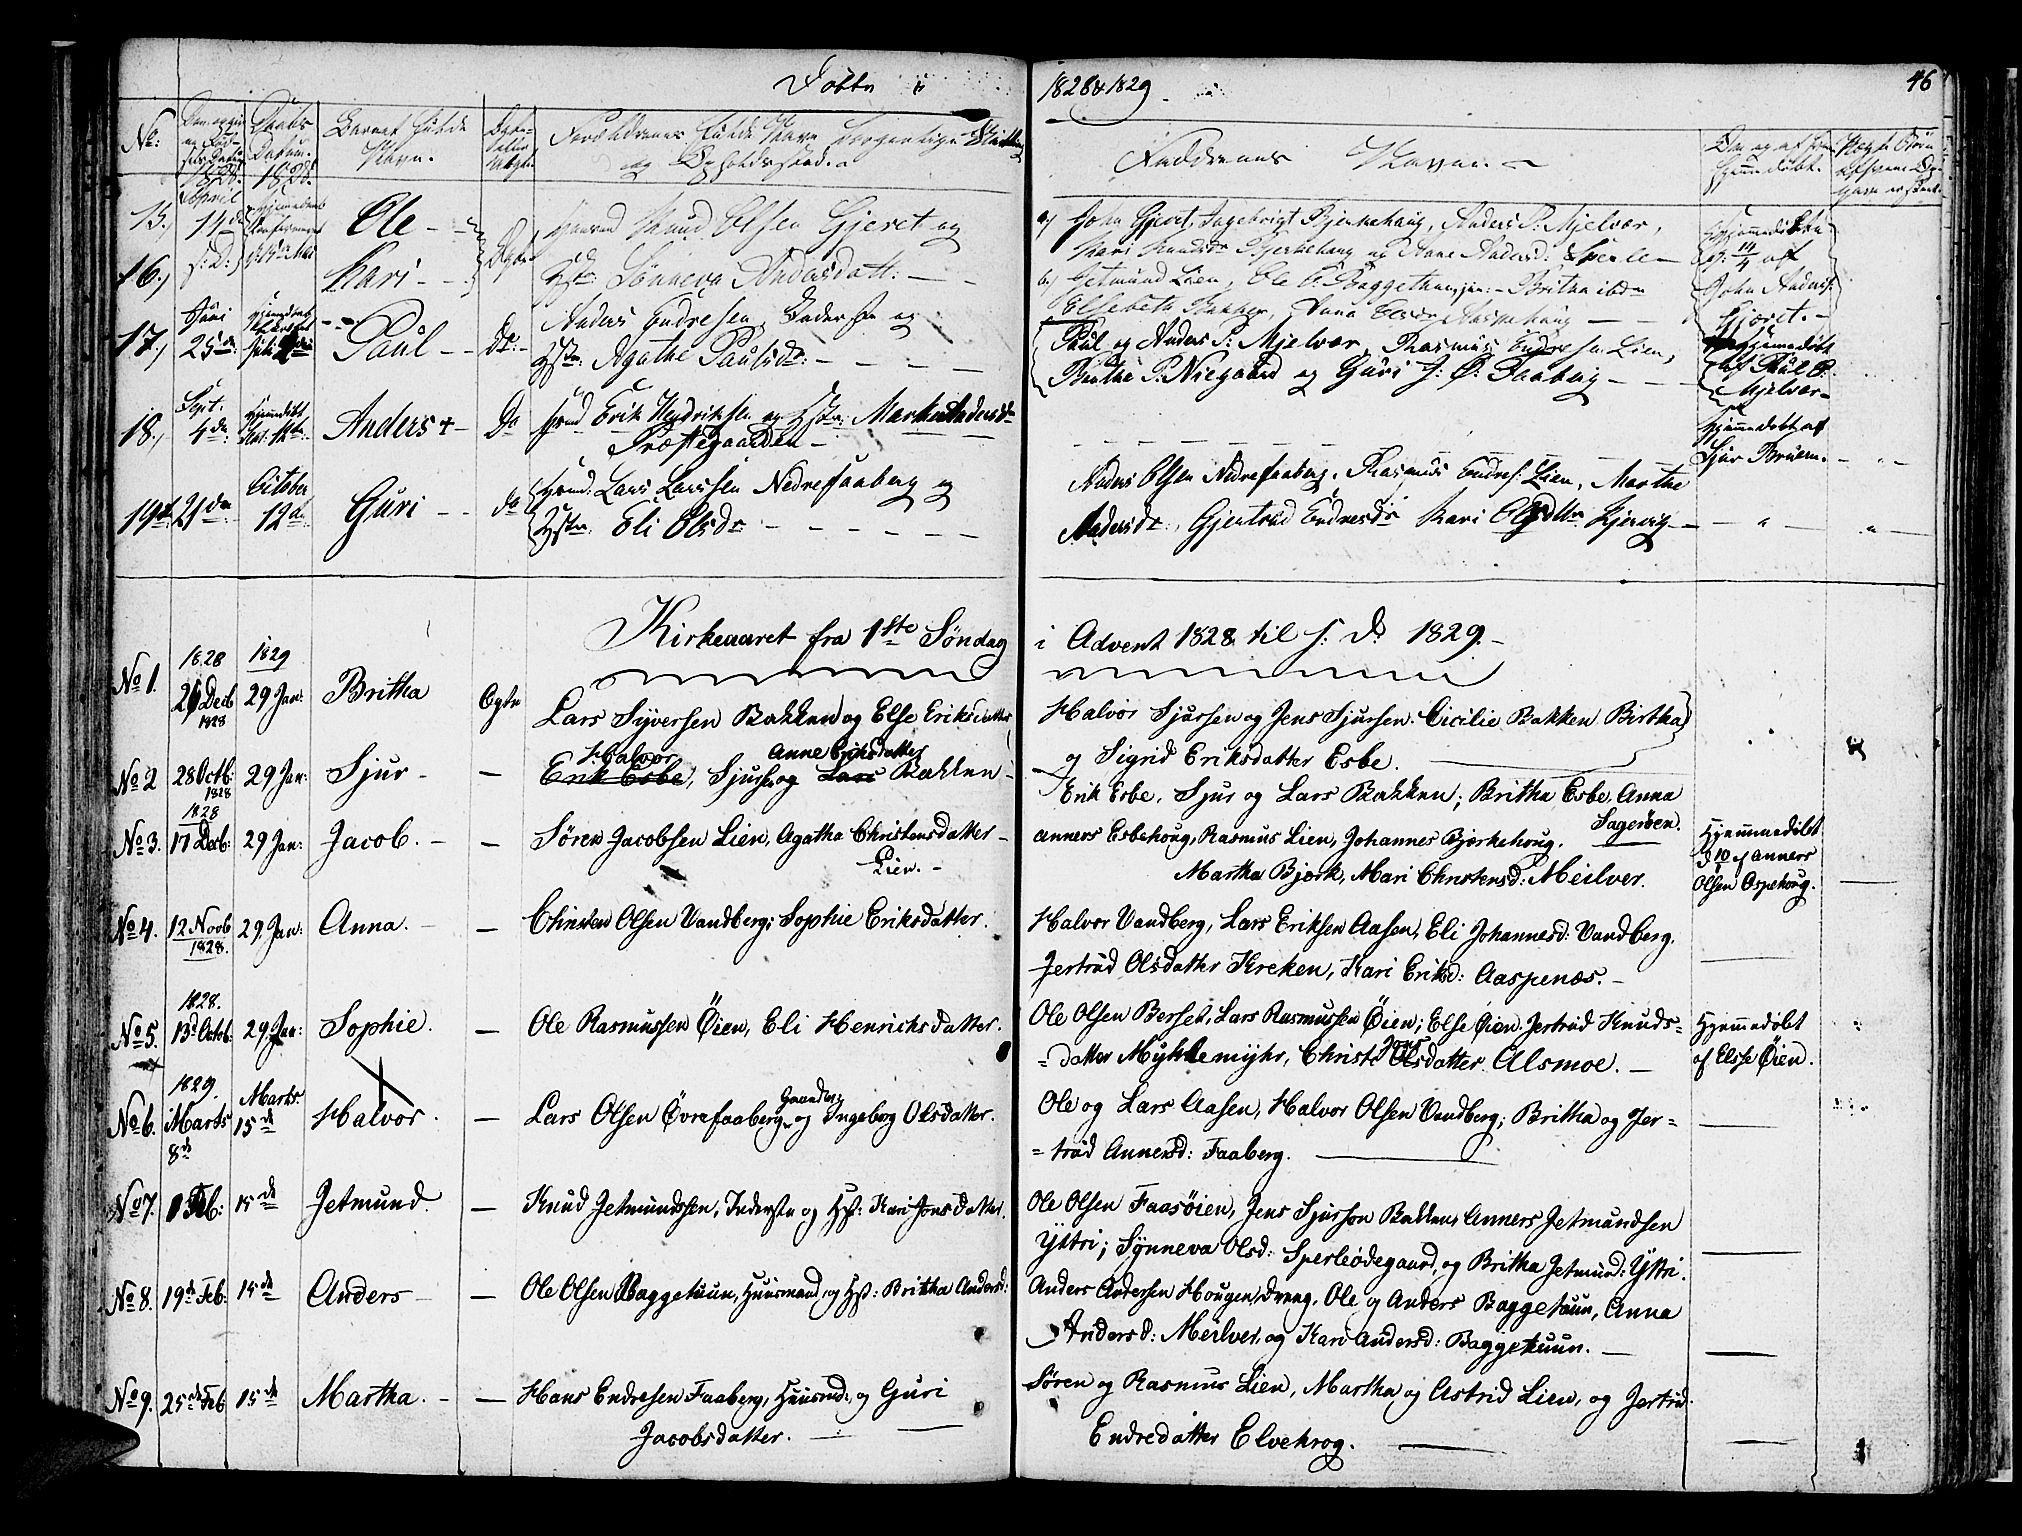 Døbte i 1828 & 1829 46
No: Barnets fulde Navn. Forældrenes fulde Navn og Opholdssted. Faddernes Navne. Hjemmedøbt.
1828. 1828.
15.) April 14de Ole Huusmd Knud Olsen Gjeret og
a) John Gjeret, Ingebrigt Bjerkehaug, Anders P. Mjelvær,
Mari Knudsdr Bjerkehaug og Anne Andersd: Sperle
16.) Kari Hstr: Sønneva Andersdatt:
b.) Gjetmund Lien, Ole O. Baggethun, Britha ibdm
Hjemmedøbte d: 14/4 af John Anders. Gjeret.
17.) Juni 25de: Paul Do: Anders Endresen, Inderste og
Hstr: Agathe Paulsdr:
Paul og Anders P. Mjelvær, Rasmus Endresen Lien,
Berthe P. Niegaard og Guri J. O. Faaberg
Hjemmedøbt af Paul P. Mjelvær
18.) Sept. 4de: Hjemdøbt Anders + Do Huusmd Erik Hendriksen og Hstr: Marthe Andersdr
Præstegaarden
Hjemmedøbt af Sjur Bruem.
19de: 21de October 12de Guri do Huusmd: Lars Larssen Nedrefaaberg og
Hstr: Eli Olsdr
Anders Olsen Nedrefaaberg, Rasmus Endres: Lien, Marthe
Andersdr:, Gjertrud Endresdr Kari Olsdttr Kjervig
Kirkeaaret fra 1ste Søndag i Advent 1828 til s. D. 1829.
No 1. 1828 1829 26 Decb 1828 29 Jan: Britha Ægte Lars Syversen Bakken og Else Eriksdatter
Halvor Sjursen og Jens Sjursen. Cicilie Bakken Birtha
og Sigrid Eriksdatter Esbe.
No 2 28 Octb: 1828 29 Jan: Sjur Erik Esbe, Halvor Sjurs. og Lars Anne Eriksdatter Bakken
Erik Esbe, Sjur og Lars Bakken; Britha Esbe, Anna
Sagerøen.
No 3. 1828 17 Decb: 29 Jan: Jacob. Søren Jacobsen Lien, Agatha Christensdatter
Lien.
Anners Esbehoug, Rasmus Lien, Johannes Bjørkehoug.
Martha Bjørk, Mari Christensd: Meilver.
Hjemmedøbt d 10 af Anners Olsen Aspehoug.
No 4. 12 Novb 1828. 29 Jan: Anna. Christen Olsen Vandberg; Sophie Eriksdatter.
Halvor Vandberg, Lars Eriksen Aasen, Eli Johannesd: Vandberg.
Jertrud Olsdatter Kreken, Kari Eriksd: Aaspenæs.
No 5. 1828. 13de Octob: 29 Jan: Sophie. Ole Rasmussen Øien, Eli Henrichsdatter.
Ole Olsen Berset, Lars Rasmussen Øien; Else Øien. Jertrud Knuds=
=datter Myklemyhr, Christi Olsdatter Alsmoe.
Hjemmedøbt af Else Øien.
No 6. 1829. Marts 8de Marts. 15de Halvor. Lars Olsen Øvrefaaberg Gaardm: og Ingeborg Olsdatter.
Ole og Lars Aasen, Halvor Olsen Vandberg; Britha og Jer=
=trud Annersd: Faaberg.
No 7. 1 Feb: 15de Jetmund. Knud Jetmundssen, Inderste og Hst: Kari Jonsdatter.
Ole Olsen Faasøien, Jens Sjurson Bakken, Anners Jetmundsen
Yttri; Synneva Olsd: Sperleødegaard, og Britha Jetmund: Yttri.
No 8. 19de Feb: 15de Anders Ole Olsen Baggetuun, Huusmand, og Hst: Britha Andersd:
Anders Andersen Hougen, dreng, Ole og Anders Baggetuun, Anna
Andersd: Meilver, og Kari Andersd: Baggetuun.
No 9. 25de Feb 15de Martha. Hans Endresen Faaberg, Huusmd: og Guri
Jacobsdatter.
Søren og Rasmus Lien, Martha og Astrid Lien, og Jertrud
Endredatter Elvekrog.